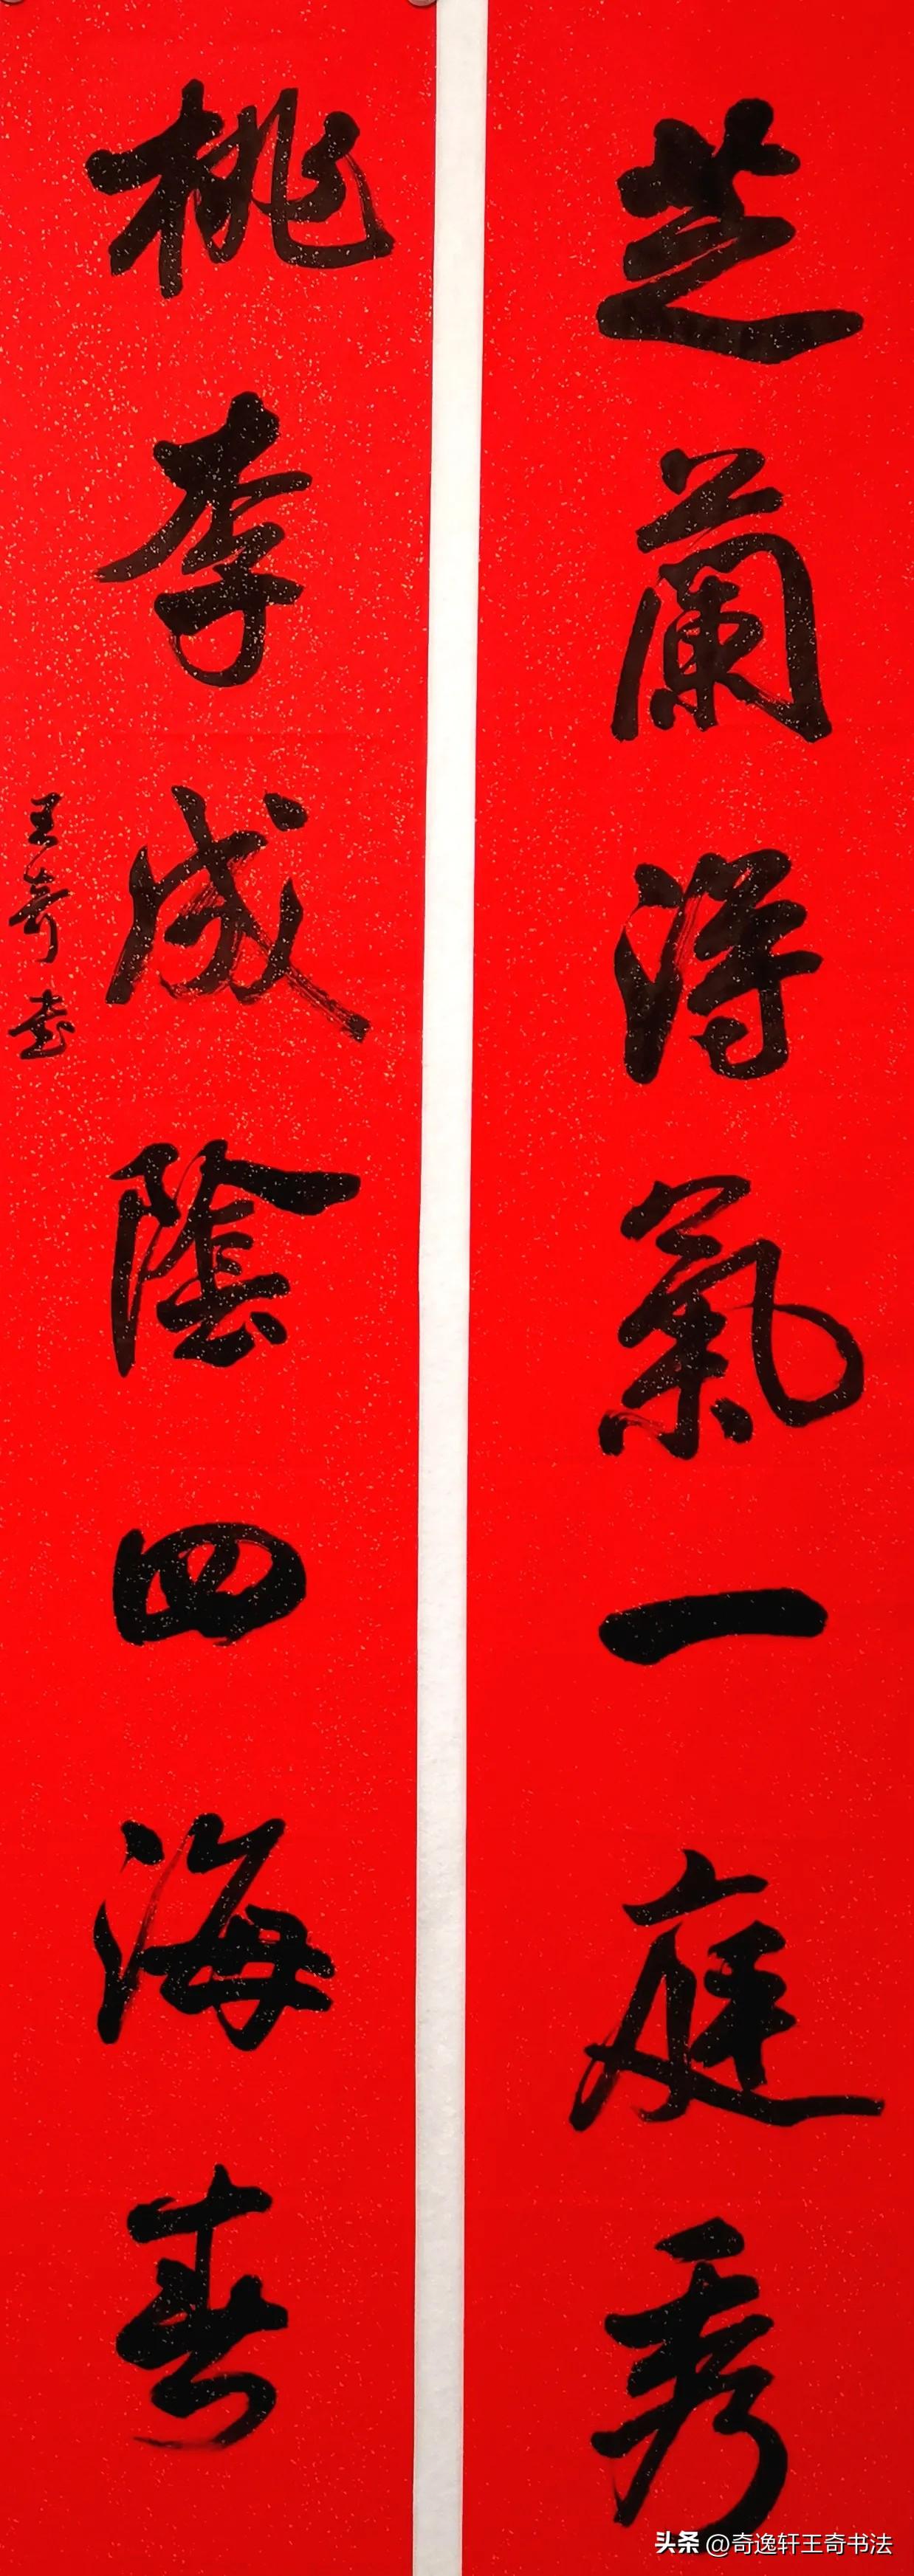 芝蘭得氣一庭秀
桃李成陰四海春
王奇书
头条 @奇逸轩王奇书法